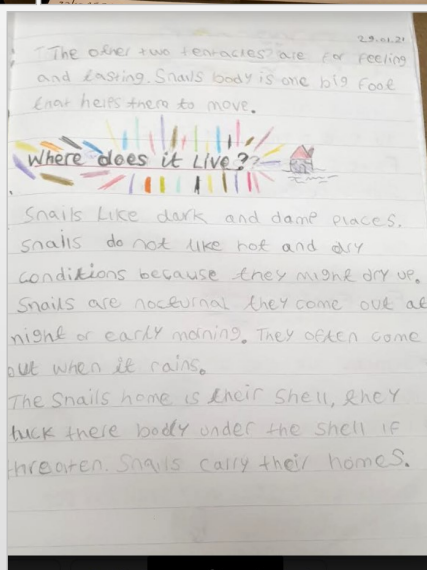 29.01.21
The other two tentacles are for feeling
and tasting. Snails body is one big foot
that helps them to move.
Where does it live??
Snails like dark and damp places.
Snails do not like hot and dry
conditions because they might dry up.
Snails are nocturnal they come out at
night or early morning. They often come
out when it rains.
The Snails home is their shell, they
tuck there bodly under the shell if
threaten. Snails carry their homes.